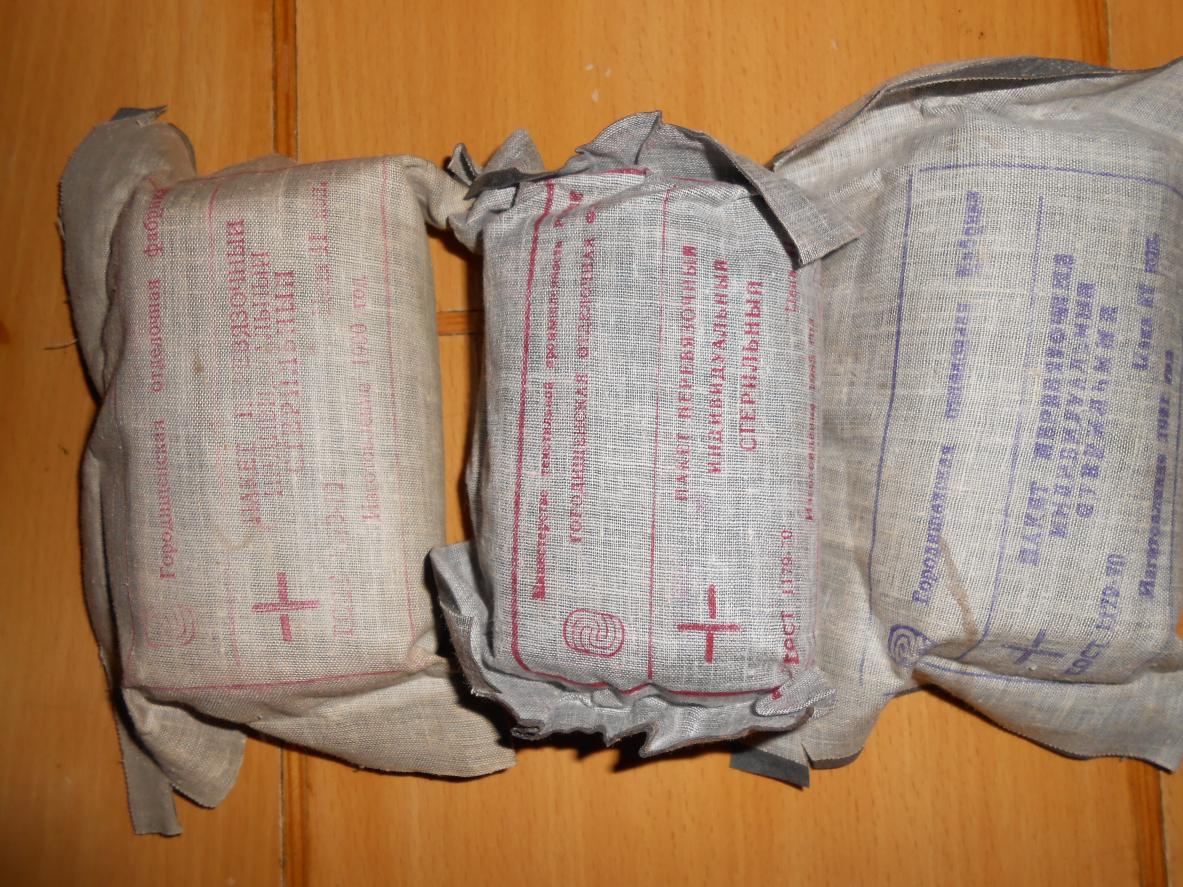 Городищенская отделочная фабрика
ПАКЕТ
СТЕРИЛЬНЫЙ
Изготовление год
Министерство текстильной промышленности
ГОРОДИЩЕНСКАЯ ОТДЕЛОЧНАЯ
ПАКЕТ ПЕРЕВЯЗОЧНЫЙ
ИНДИВИДУАЛЬНЫЙ
СТЕРИЛЬНЫЙ
ГОСТ 1179-70
Цена
Городищенская отделочная фабрика
ПАКЕТ ПЕРЕВЯЗОЧНЫЙ
ИНДИВИДУАЛЬНЫЙ
СТЕРИЛЬНЫЙ
ГОСТ 1179-70
Цена коп.
Изготовление год